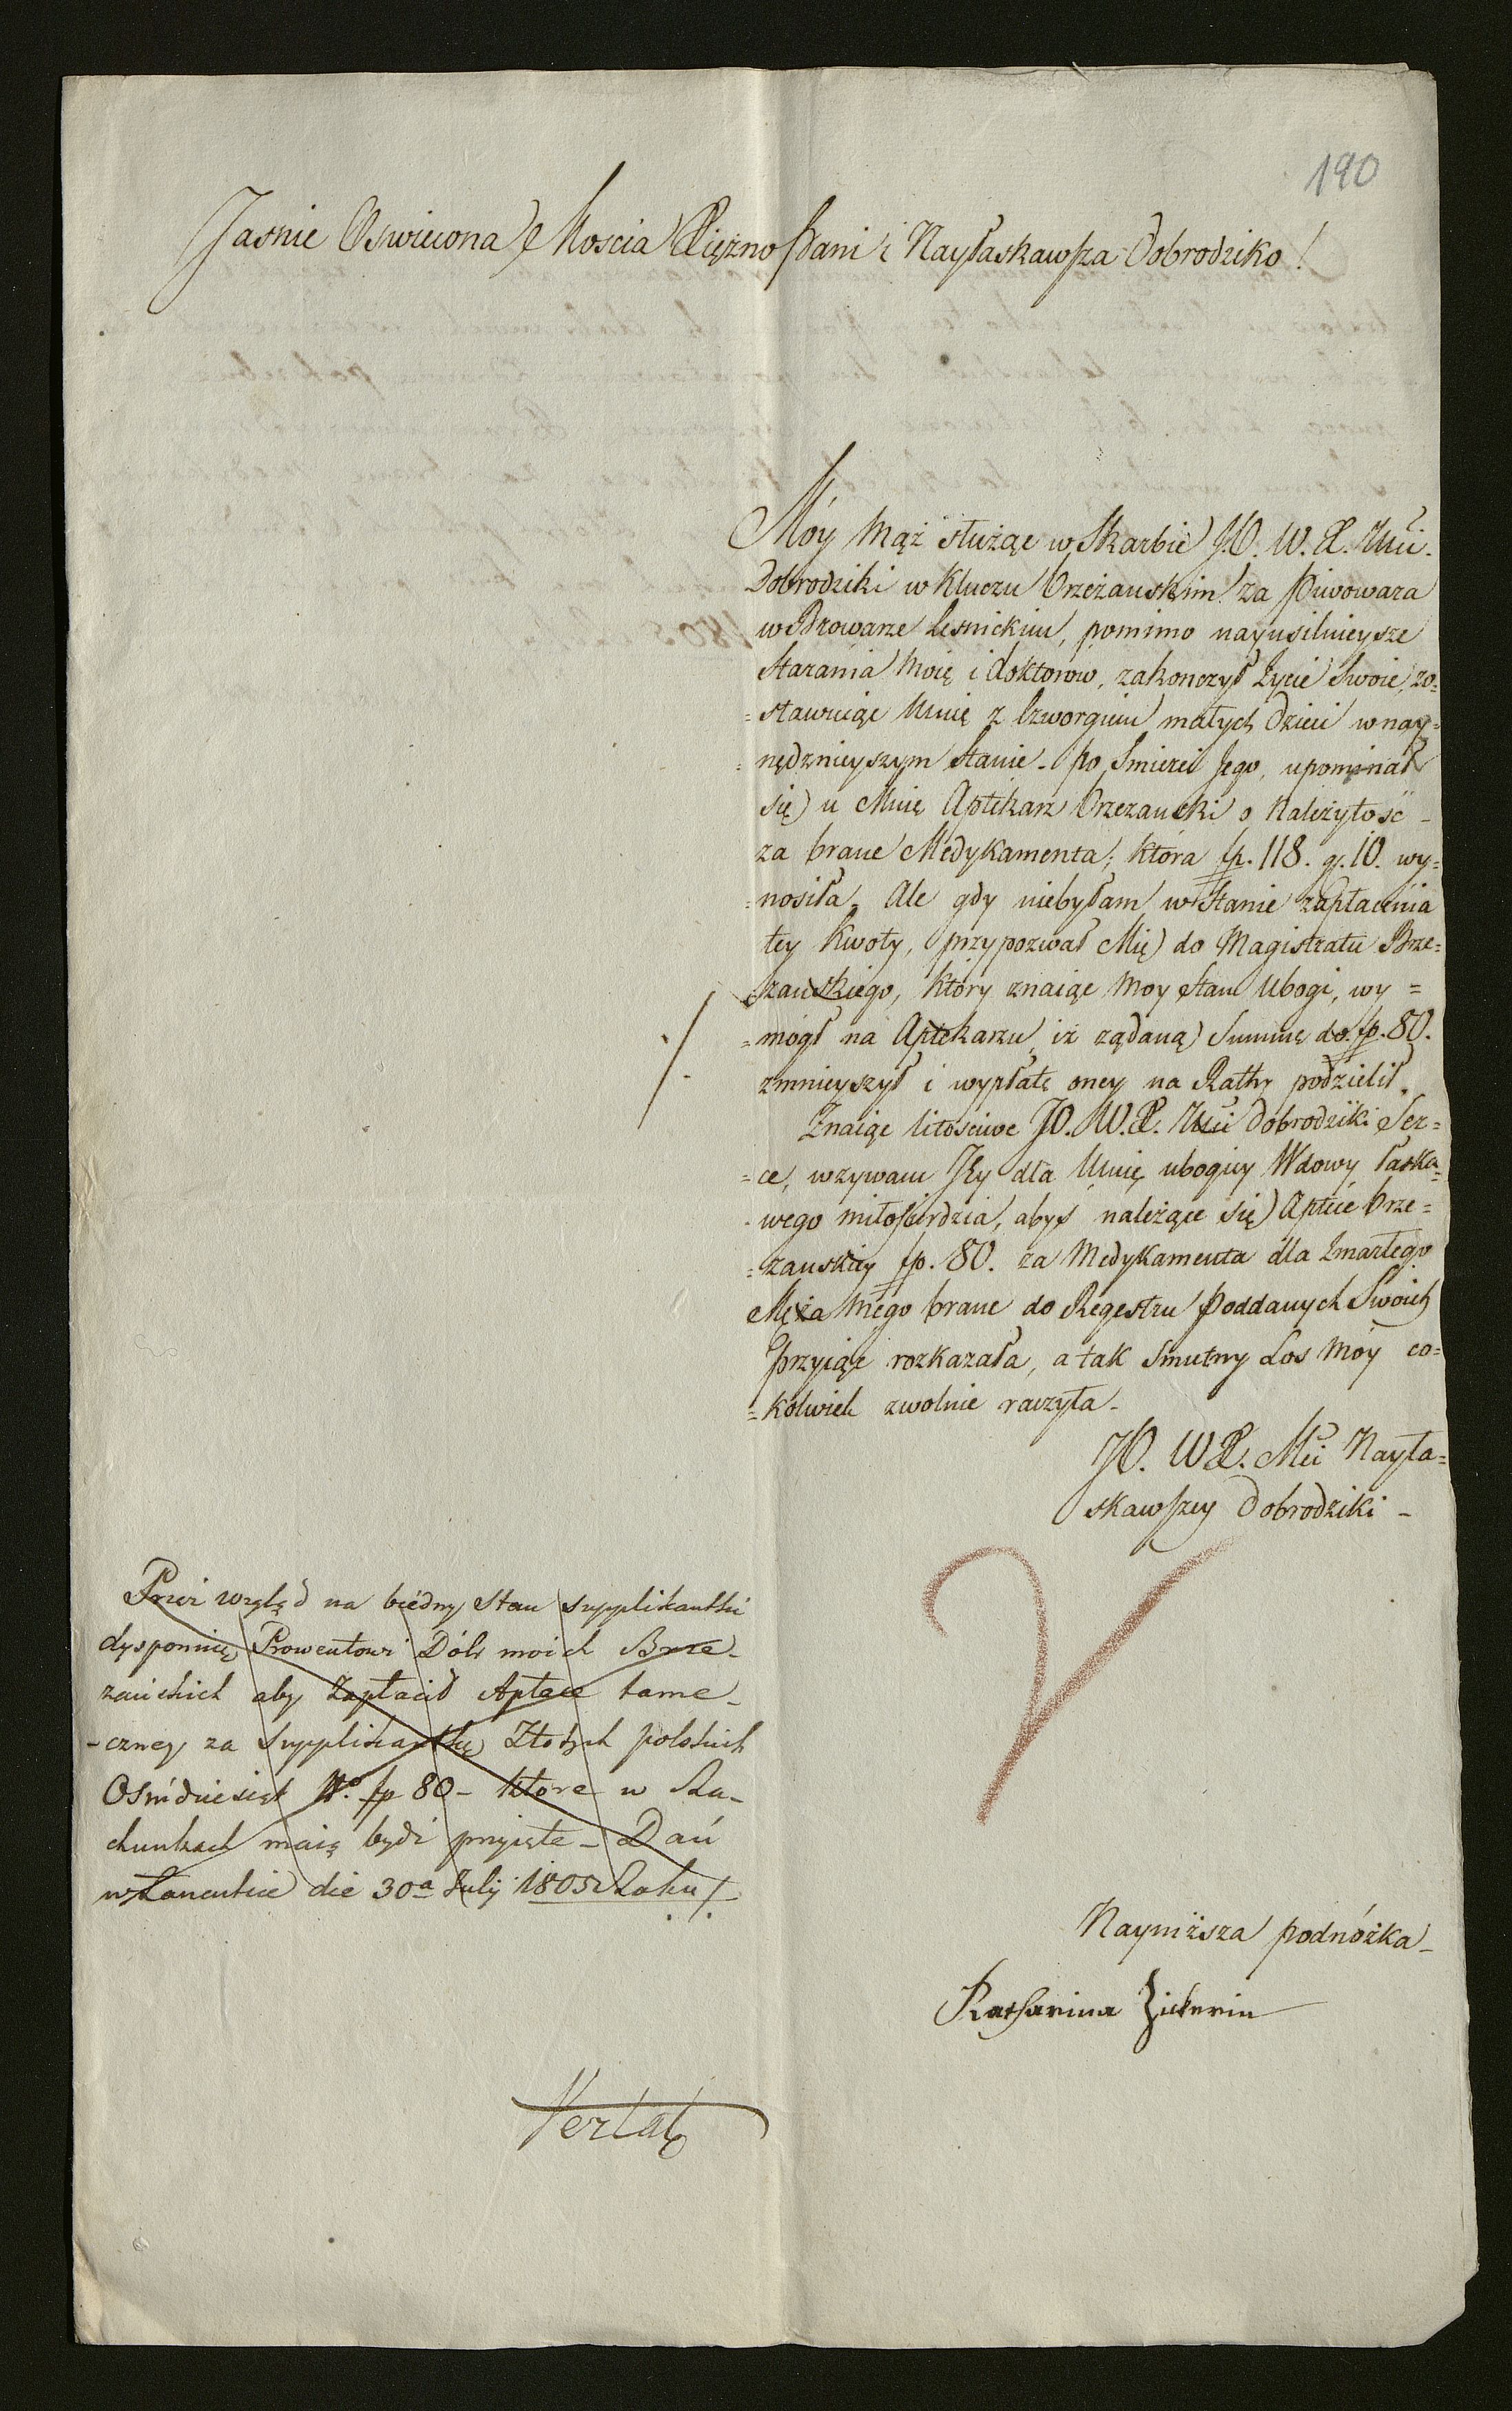 190
Jasnie Oswiecona Moscia Xiężno Pani i Nayłaskawsza Dobrodziko!
Móy Mąż służąc w Skarbie JO. W. X. Mci.
Dobrodziki w Kluczu Brzeżanskim za Piwowara
w Browarze Lesnickim, pomimo nayusilnieysze
starania moie i doktorow, zakonczył Zycie Swoie, zo=
=stawuiąc Mnie z Czworgiem małych dzieci w nay=
=nędznieyszym Stanie - po Smierci Jego, upominał
się u Mnie Aptikarz Brzezanski o Należytość -
za brane Medykamenta; która fp. 118. g. 10. wy=
=nosiła. Ale gdy niebyłam w Stanie zapłacenia
tey Kwoty, przypozwał Mię do Magistratu Brze=
=zanskiego, który znaiąc moy Stan Ubogi, wy=
=mógł na Aptekarzu, iż ządaną Summę do fp. 80.
zmnieyszył i wypłatę oney na Rathy podzielił.
Znaiąc litościwe JO. W. X. Mci Dobrodziki Ser=
=ce, wzywam Jey dla Mnie ubogiey Wdowy łaska=
=wego miłosierdzia, abyś należące się Aptece Brze=
=zanskiey fp. 80. za Medykamenta dla Zmarłego
Męża mego brane do Regestru Poddanych Swoich
przyiąć rozkazała, a tak Smutny Los Móy co=
=kolwiek zwolnic raczyła -
JO. W X. Mci Nayła=
skawszey Dobrodziki -
Przez wzgląd na biédny Stan supplikantki
dysponuię Prowentowi Dóbr moich Brze-
zanskich aby Zapłacił Aptece tame-
-czney za Supplikantkę Złotych polskich
Ośmdziesiąt No. fp 80 - które w Ra-
chunkach maią bydź przyięte - Dań
w Łancucie die 30a July 1805 Roku
Nayniższa podnóżka -
Katharina
Vertat